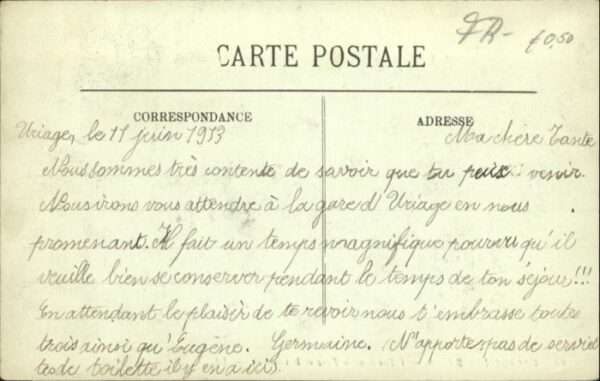 FR- f0,50
CARTE POSTALE
CORRESPONDANCE
ADRESSE
Uriage, le 11 juin 1913
Ma chère Tante
Nous sommes très contente de savoir que tu peux venir.
Nous irons vous attendre à la gare d'Uriage en nous
promenant. Il fait un temps magnifique pourvu qu'il
veuille bien se conserver pendant le temps de ton séjour!!!
En attendant le plaisir de te revoir nous t'embrasse toute
trois ainsi qu'Eugène. Germaine. N'apporte pas de serviet
tes de toilette il y en a ici.